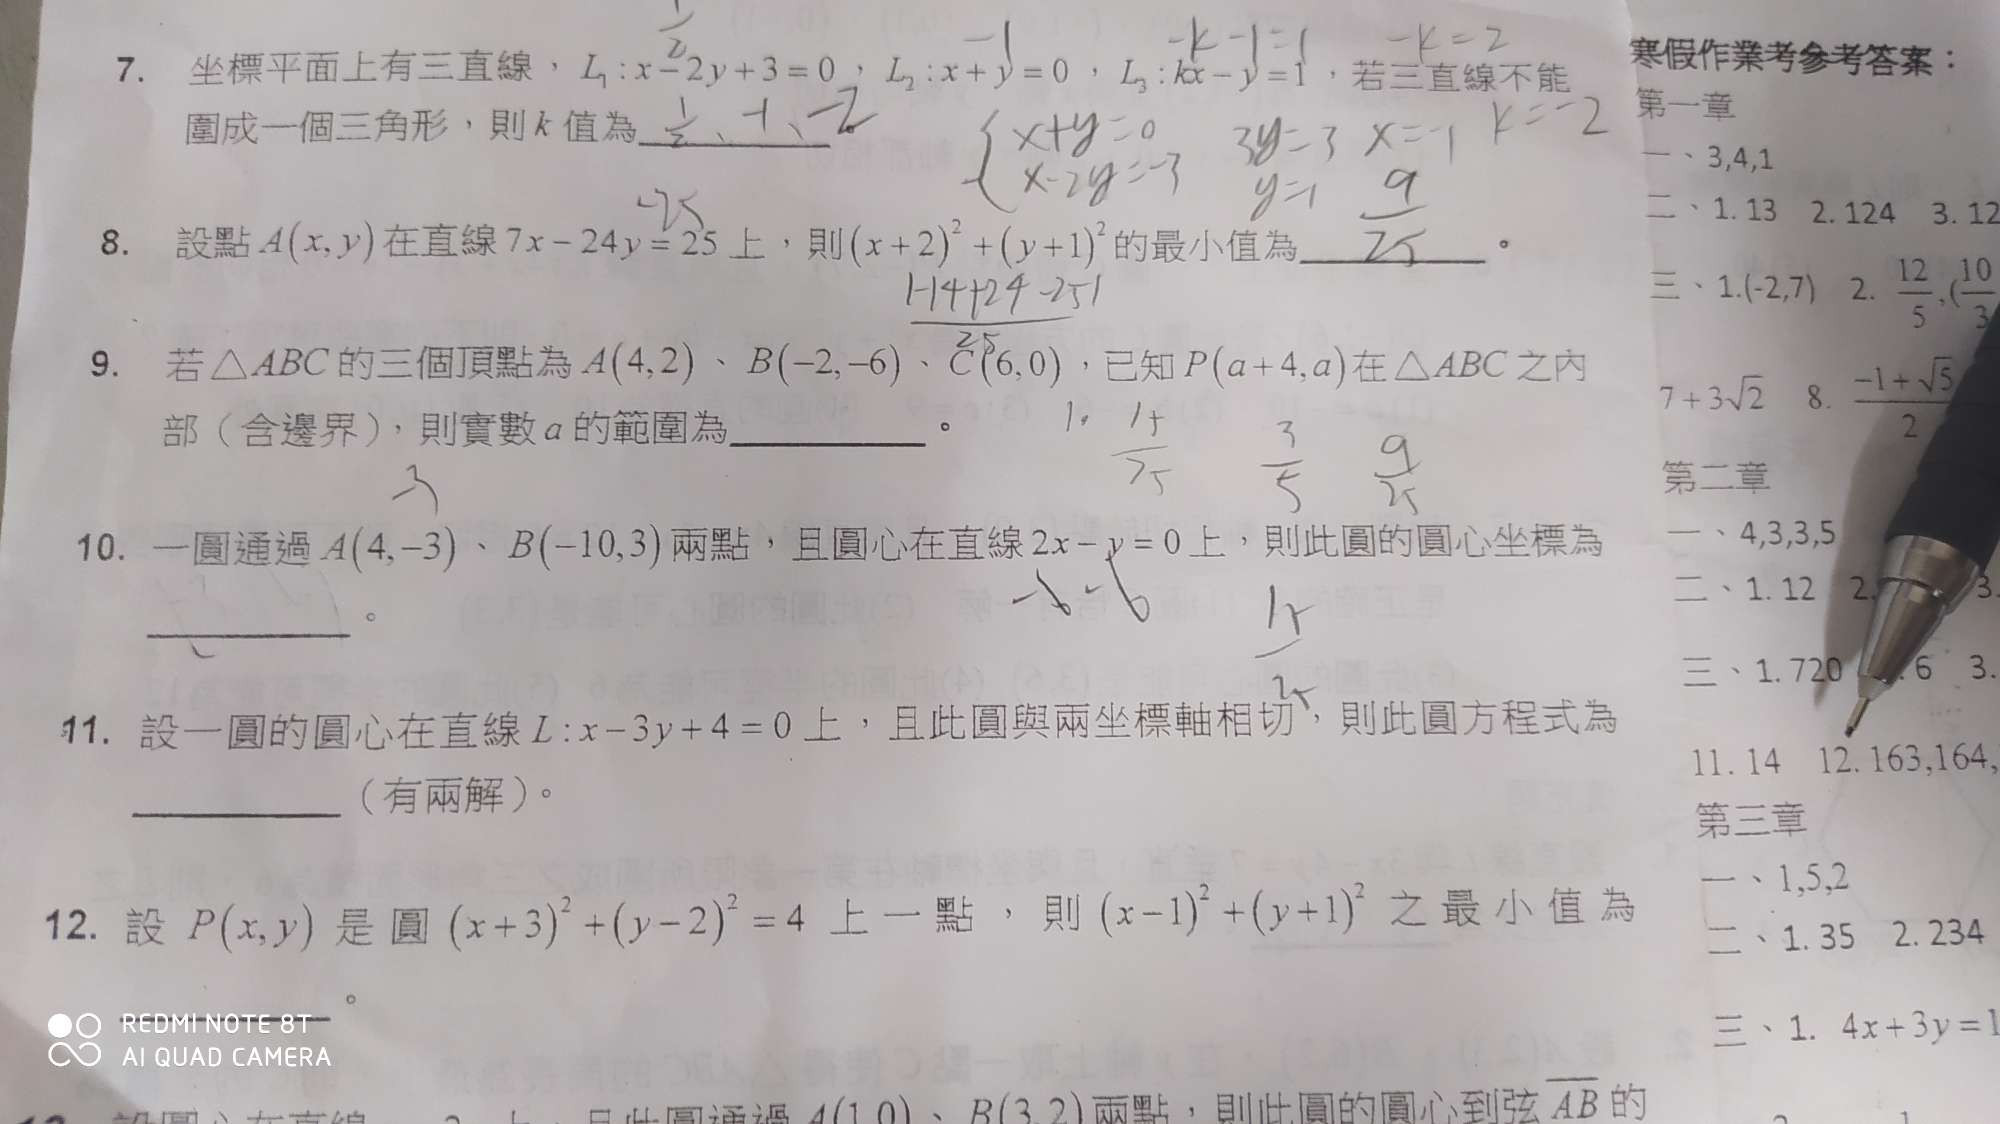 1/2 -1 -k-1=1 -k=2
7. 坐標平面上有三直線，L₁:x-2y+3=0，L₂:x+y=0，L₃:kx-y=1，若三直線不能
圍成一個三角形，則k值為 1/2、-1、-2
x+y=0 3y=3 x=-1 k=-2
x-2y=-3 y=1
-25 9/25
8. 設點A(x,y)在直線7x-24y=25上，則(x+2)²+(y+1)²的最小值為______。
|-14+24-25|
25
9. 若△ABC的三個頂點為A(4,2)、B(-2,-6)、C(6,0)，已知P(a+4,a)在△ABC之內
部（含邊界），則實數a的範圍為______。
15/25 3/5 9/25
-3
10. 一圓通過A(4,-3)、B(-10,3)兩點，且圓心在直線2x-y=0上，則此圓的圓心坐標為
______。
-6 -6
15/25
11. 設一圓的圓心在直線L:x-3y+4=0上，且此圓與兩坐標軸相切，則此圓方程式為
______（有兩解）。
12. 設P(x,y)是圓(x+3)²+(y-2)²=4上一點，則(x-1)²+(y+1)²之最小值為
______。
A(1,0)、B(3,2)兩點，則此圓的圓心到弦AB的
寒假作業考參考答案：
第一章
一、3,4,1
二、1. 13 2. 124 3. 12
三、1.(-2,7) 2. 12/5,(10/3
7+3√2 8. (-1+√5)/2
第二章
一、4,3,3,5
二、1. 12 2. 3.
三、1. 720 6 3.
11. 14 12. 163,164,
第三章
一、1,5,2
二、1. 35 2. 234
三、1. 4x+3y=1
REDMI NOTE 8T
AI QUAD CAMERA